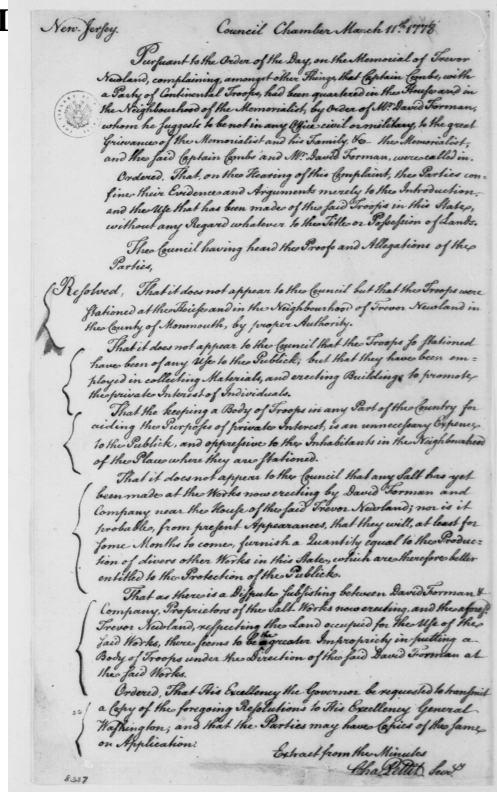 New Jersey. Council Chamber March 11th. 1778
Pursuant to the Order of the Day, on the Memorial of Trevor
Newland, complaining, amongst other Things that Captain Combs, with
a Party of Continental Troops, had been quartered in the House and in
the Neighbourhood of the Memorialist, by Order of Mr. David Forman,
whom he suggests to be not in any Office civil or military, to the great
Grievance of the Memorialist and his Family, &c the Memorialist,
and the said Captain Combs and Mr. David Forman, were called in.
Ordered, That, on the Hearing of this Complaint, the Parties con=
fine their Evidence and Arguments merely to the Introduction,
and the Use that has been made of the said Troops in this State,
without any Regard whatever to the Title or Possession of Lands.
The Council having heard the Proofs and Allegations of the
Parties,
Resolved, That it does not appear to the Council but that the Troops were
stationed at the House and in the Neighbourhood of Trevor Newland in
the County of Monmouth, by proper Authority.
That it does not appear to the Council that the Troops so stationed
have been of any Use to the Publick; but that they have been em=
ployed in collecting Materials, and erecting Buildings to promote
the private Interest of Individuals.
That the keeping a Body of Troops in any Part of the Country for
aiding the Purposes of private Interest, is an unnecessary Expence
to the Publick, and oppressive to the Inhabitants in the Neighbourhood
of the Place where they are stationed.
That it does not appear to the Council that any Salt has yet
been made at the Works now erecting by David Forman and
Company near the House of the said Trevor Newland; nor is it
probable, from present Appearances, that they will, at least for
some Months to come, furnish a Quantity equal to the Produc=
tion of divers other Works in this State, which are therefore better
entitled to the Protection of the Publick.
That as there is a Dispute subsisting between David Forman &
Company, Proprietors of the Salt Works now erecting, and the afores.
Trevor Newland, respecting the Land occupied for the Use of the
said Works, there seems to be the greater Impropriety in putting a
Body of Troops under the Direction of the said David Forman at
the said Works.
Ordered, That His Excellency the Governor be requested to transmit
a Copy of the foregoing Resolutions to His Excellency General
Washington; and that the Parties may have Copies of the same
on Application.
Extract from the Minutes
Cha. Pettit Secy.